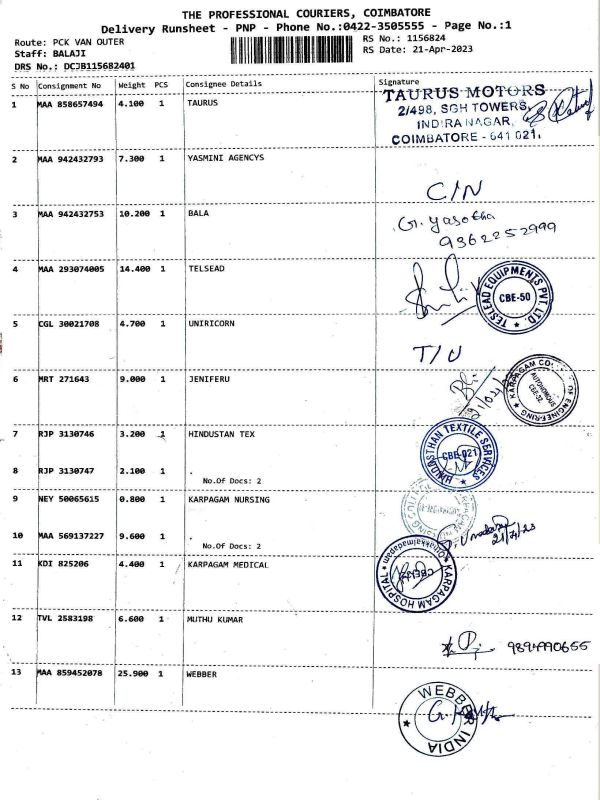 THE PROFESSIONAL COURIERS, COIMBATORE
Delivery Runsheet - PNP - Phone No.:0422-3505555 - Page No.:1
Route: PCK VAN OUTER
RS No.: 1156824
Staff: BALAJI
RS Date: 21-Apr-2023
DRS No.: DCJB115682401
S No Consignment No Weight PCS Consignee Details Signature
1 MAA 858657494 4.100 1 TAURUS
TAURUS MOTORS
2/498, SGH TOWERS,
INDIRA NAGAR,
COIMBATORE - 641 021.
2 MAA 942432793 7.300 1 YASMINI AGENCYS
C/N
3 MAA 942432753 10.200 1 BALA
G. Yasotha
9362252999
4 MAA 293074005 14.400 1 TELSEAD
TESLEAD EQUIPMENTS PVT. LTD.
CBE-50
5 CGL 30021708 4.700 1 UNIRICORN
T/U
6 MRT 271643 9.000 1 JENIFERU
KARPAGAM OF ENGINEERING
AUTONOMOUS
CBE-32
7 RJP 3130746 3.200 1 HINDUSTAN TEX
HINDASTHAN TEXTILE SERVICES
CBE-021
8 RJP 3130747 2.100 1 .
No.Of Docs: 2
9 NEY 50065615 0.800 1 KARPAGAM NURSING
10 MAA 569137227 9.600 1 .
No.Of Docs: 2
21/4/23
11 KDI 825206 4.400 1 KARPAGAM MEDICAL
KARPAGAM HOSPITAL
Othakkalmandapam
12 TVL 2583198 6.600 1 MUTHU KUMAR
13 MAA 859452078 25.900 1 WEBBER
WEBBER INDIA